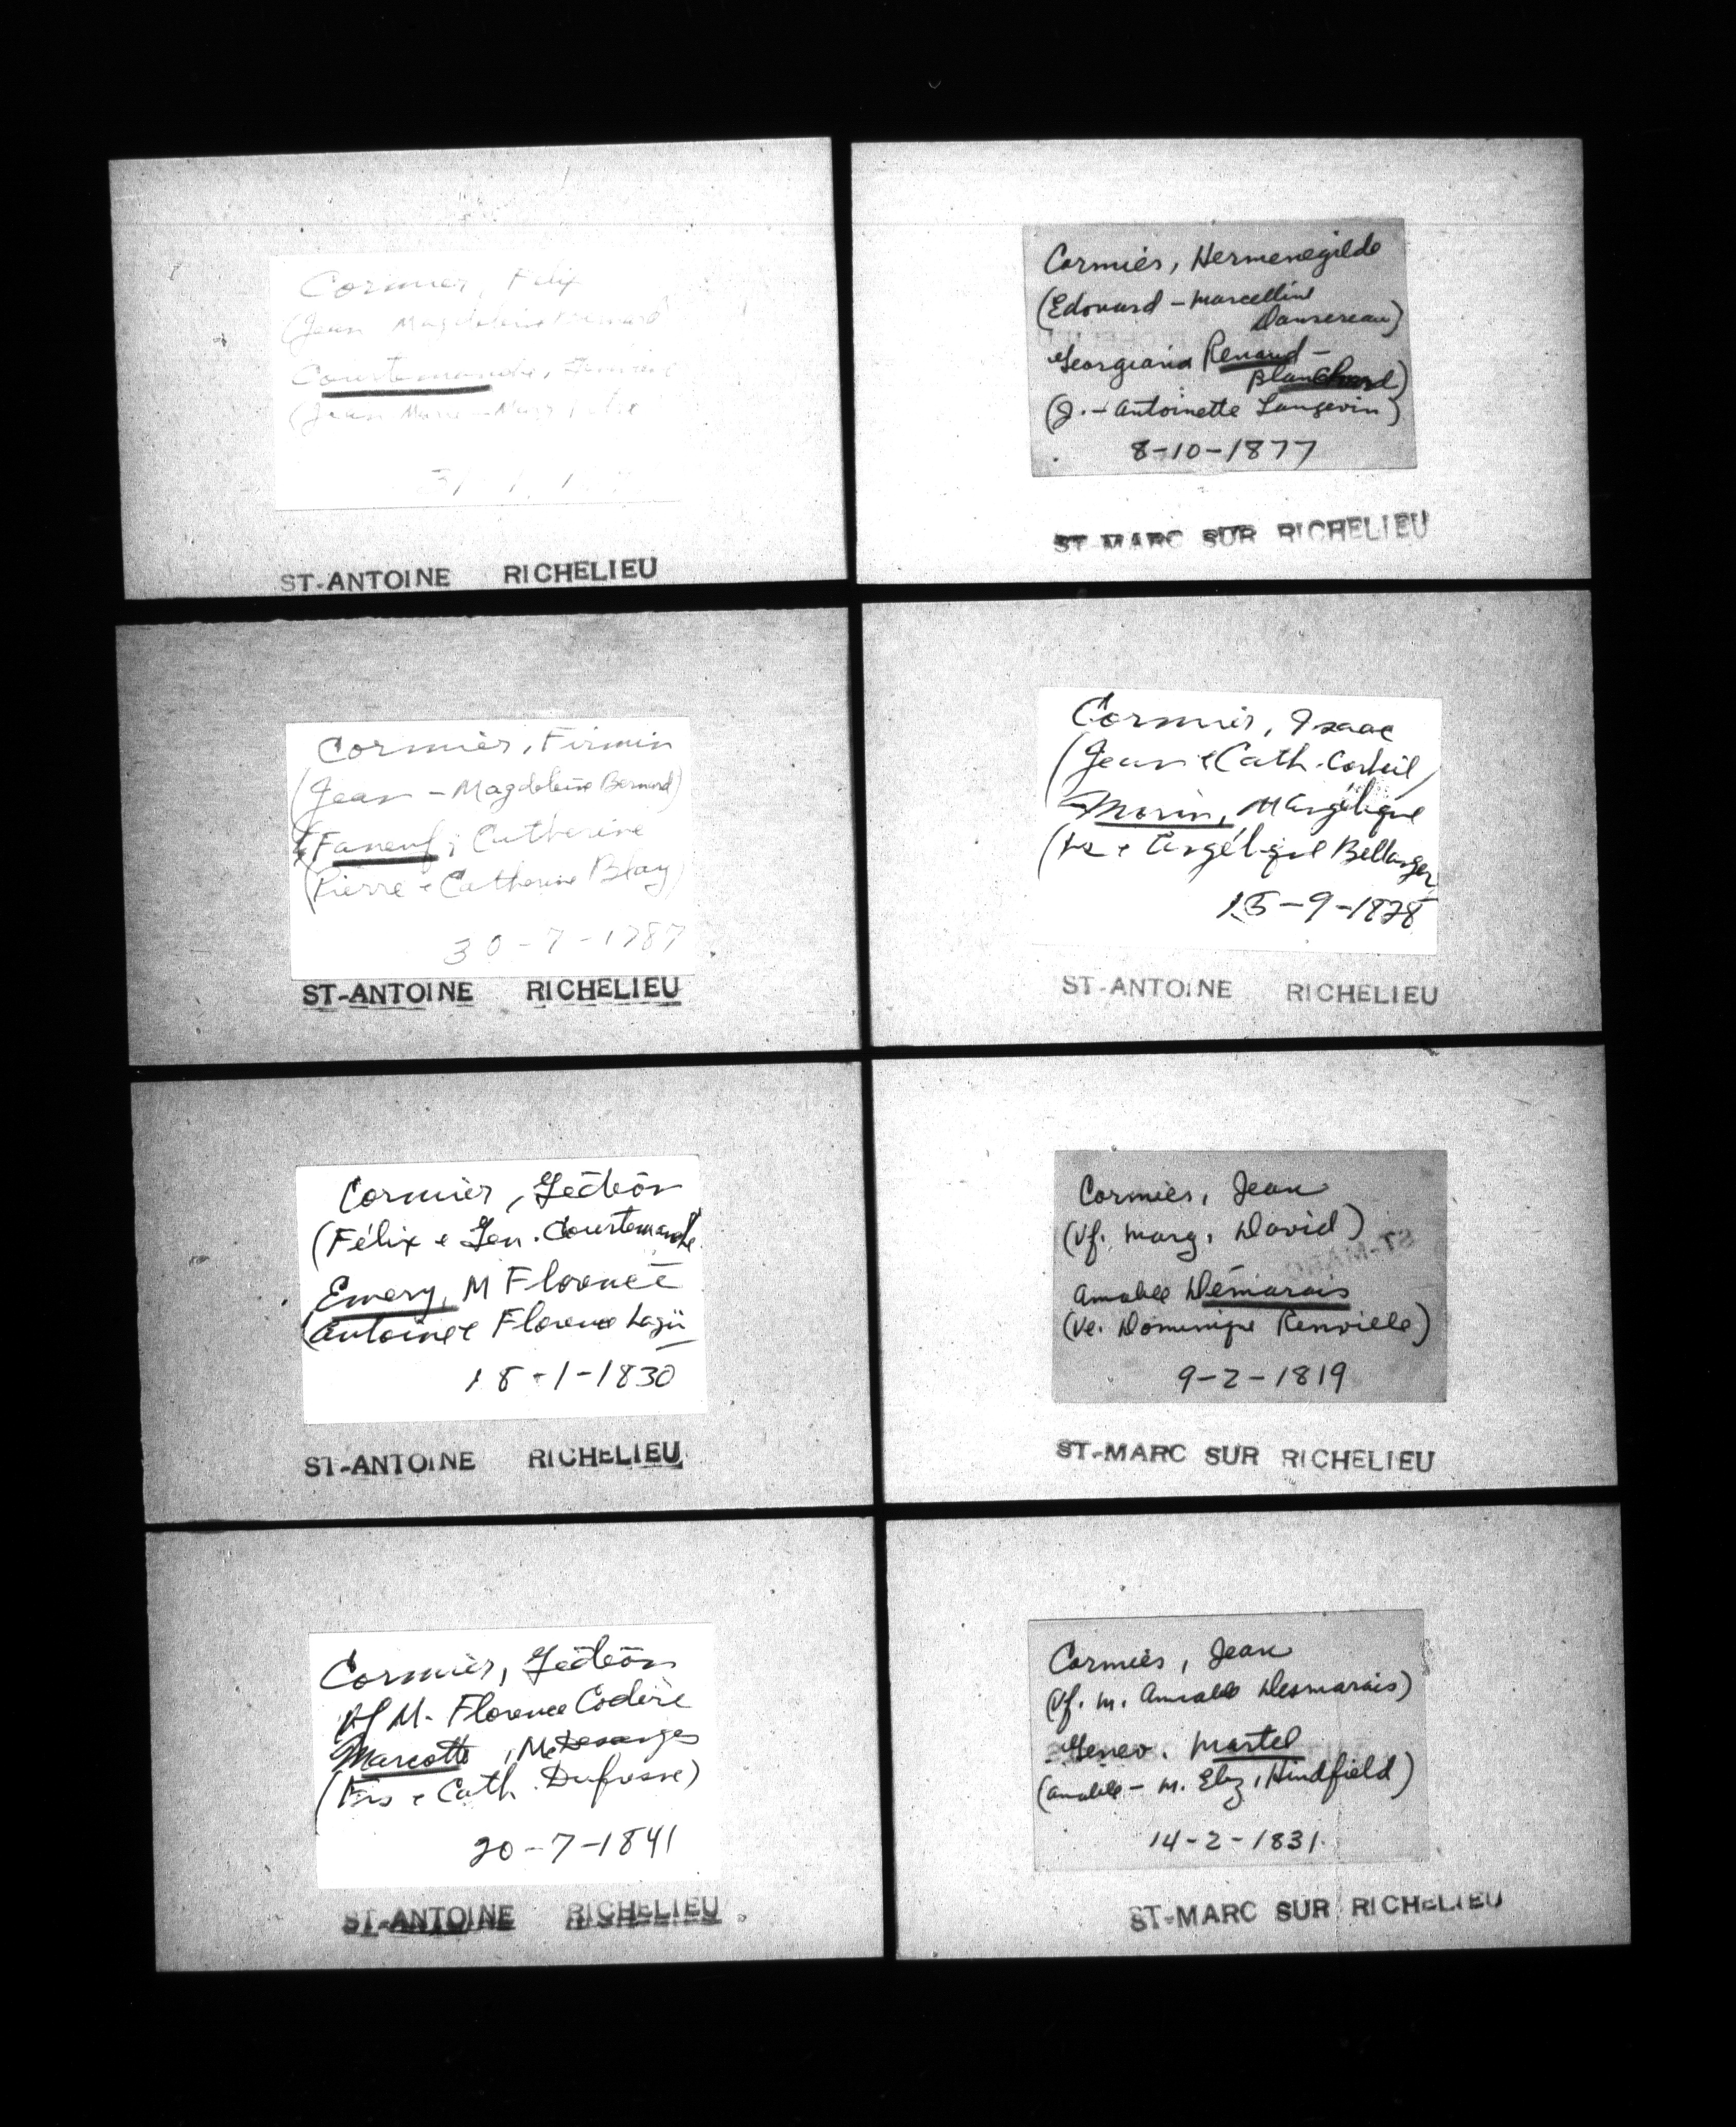 Cormier, Félix
(Jean Magdeleine Bernard
Courtemanche,
(Jean Marie
ST-ANTOINE RICHELIEU
Cormier, Firmin
(Jean - Magdeleine Bernard)
Faneuf, Catherine
(Pierre e Catherine Blay)
30-7-1787
ST-ANTOINE RICHELIEU
Cormier, Gédéon
(Félix e Gen. Courtemanche
Emery, M Florence
(Antoine e Florence
18-1-1830
ST-ANTOINE RICHELIEU
Cormier, Gédéon
Vf M. Florence Codère
Marcotte, M. Desanges
(Frs e Cath. Dufresne)
20-7-1841
ST-ANTOINE RICHELIEU
Cormier, Hermenegilde
(Edouard - Marcelline
Dansereau)
Georgiana Renaud -
Blanchard)
(J. - Antoinette Langevin)
8-10-1877
ST-MARC SUR RICHELIEU
Cormier, Isaac
(Jean e Cath. Corbeil)
Morin, M Angélique
e Angélique Bellanger
15-9-1828
ST-ANTOINE RICHELIEU
Cormier, Jean
(Vf. Marg. David)
Amable Demarais
(Ve. Dominique Renville)
9-2-1819
ST-MARC SUR RICHELIEU
Cormier, Jean
(Vf. M. Amable Desmarais)
Genev. Martel
(Amable - M. Eliz. Hindfield)
14-2-1831
ST-MARC SUR RICHELIEU